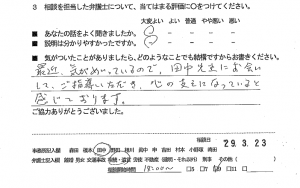 3 相談を担当した弁護士について、当てはまる評価に○をつけてください。
大変よい よい 普通 やや悪い 悪い
■ あなたの話をよく聞きましたか。
■ 説明は分かりやすかったですか。
■ 気がついたことがありましたら、どのようなことでも結構ですからお書きください。
最近、気がめいっているので、田中先生にお会い
して、ご指導いただき、心の支えになっていると
感じております。
ご協力ありがとうございました。
相談日
29.3.23